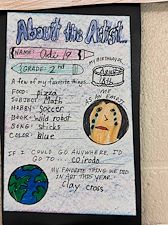 About the Artist
NAME:
GRADE: 2nd
MY BIRTHDAY
A few of my favorite things:
FOOD: pizza
SUBJECT: Math
HOBBY: soccer
BOOK: wild robot
SONG: sticks
COLOR: Blue
ME
AS AN ARTIST
IF I COULD GO ANYWHERE I'D
GO TO...
MY FAVORITE THING WE DID
IN ART THIS YEAR:
Clay